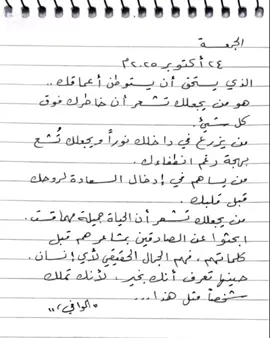 الجمعة
٢٤ أكتوبر ٢٠٢٥م
الذي يستحق أن يستوطن أعماقك ..
هو من يجعلك تشعر أن خاطرك فوق
كل شيئ.
من يزرع في داخلك نوراً ويجعلك تُشع
بهجة رغم انطفاءك.
من يساهم في إدخال السعادة لروحك
قبل قلبك.
من يجعلك تشعر أن الحياة جميلة مهما قست.
ابحثوا عن الصادقين بمشاعرهم قبل
كلماتهم، فهم الجمال الحقيقي لأي إنسان.
حينها تعرف أنك بخير، لأنك تملك
شخصاً مثل هذا...
"الوافي"